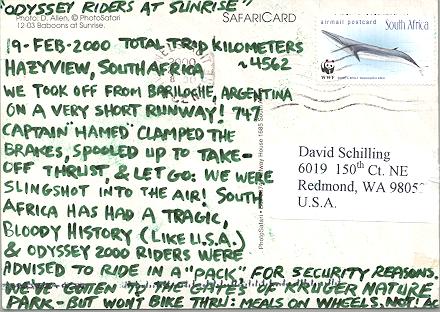 "ODYSSEY RIDERS AT SUNRISE"
Photo: D. Allen, © PhotoSafari
12 03 Baboons at Sunrise.
SAFARICARD
airmail postcard
South Africa
WWF
19-FEB-2000 TOTAL TRIP KILOMETERS
HAZYVIEW, SOUTH AFRICA ~4562
WE TOOK OFF FROM BARILOCHE, ARGENTINA
ON A VERY SHORT RUNWAY! 747
CAPTAIN "HAMED" CLAMPED THE
BRAKES, SPOOLED UP TO TAKE-
OFF THRUST, & LET GO: WE WERE
SLINGSHOT INTO THE AIR! SOUTH
AFRICA HAS HAD A TRAGIC,
BLOODY HISTORY (LIKE U.S.A.)
& ODYSSEY 2000 RIDERS WERE
ADVISED TO RIDE IN A "PACK" FOR SECURITY REASONS.
WE'VE GOTTEN TO THE GATES OF KRUGER NATURE
PARK - BUT WON'T BIKE THRU: MEALS ON WHEELS, NOT!
David Schilling
6019 150th Ct. NE
Redmond, WA 9805
U.S.A.